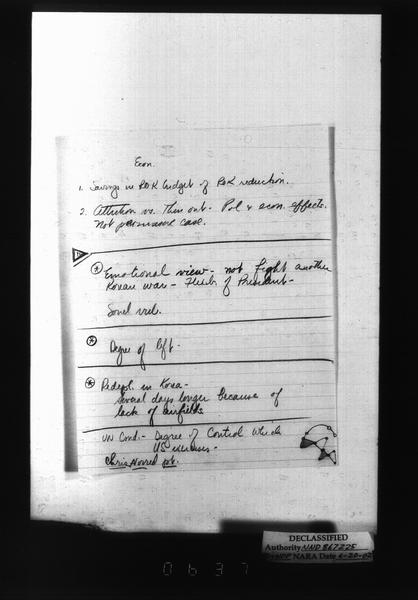 Econ.
1. Savings in ROK budget of ROK reduction.
2. Attrition vs. Thin out - Pol & econ. effects.
Not persuasive case.
* Emotional view - not fight another
Korean war - of President -
* Degree of lift -
* Redepl. in Korea -
several days longer because of
lack of airfields
UN Cmd - Degree of Control which
US exercises -
Chris Norred pt.
DECLASSIFIED
Authority NND 867225
NARA Date
0637